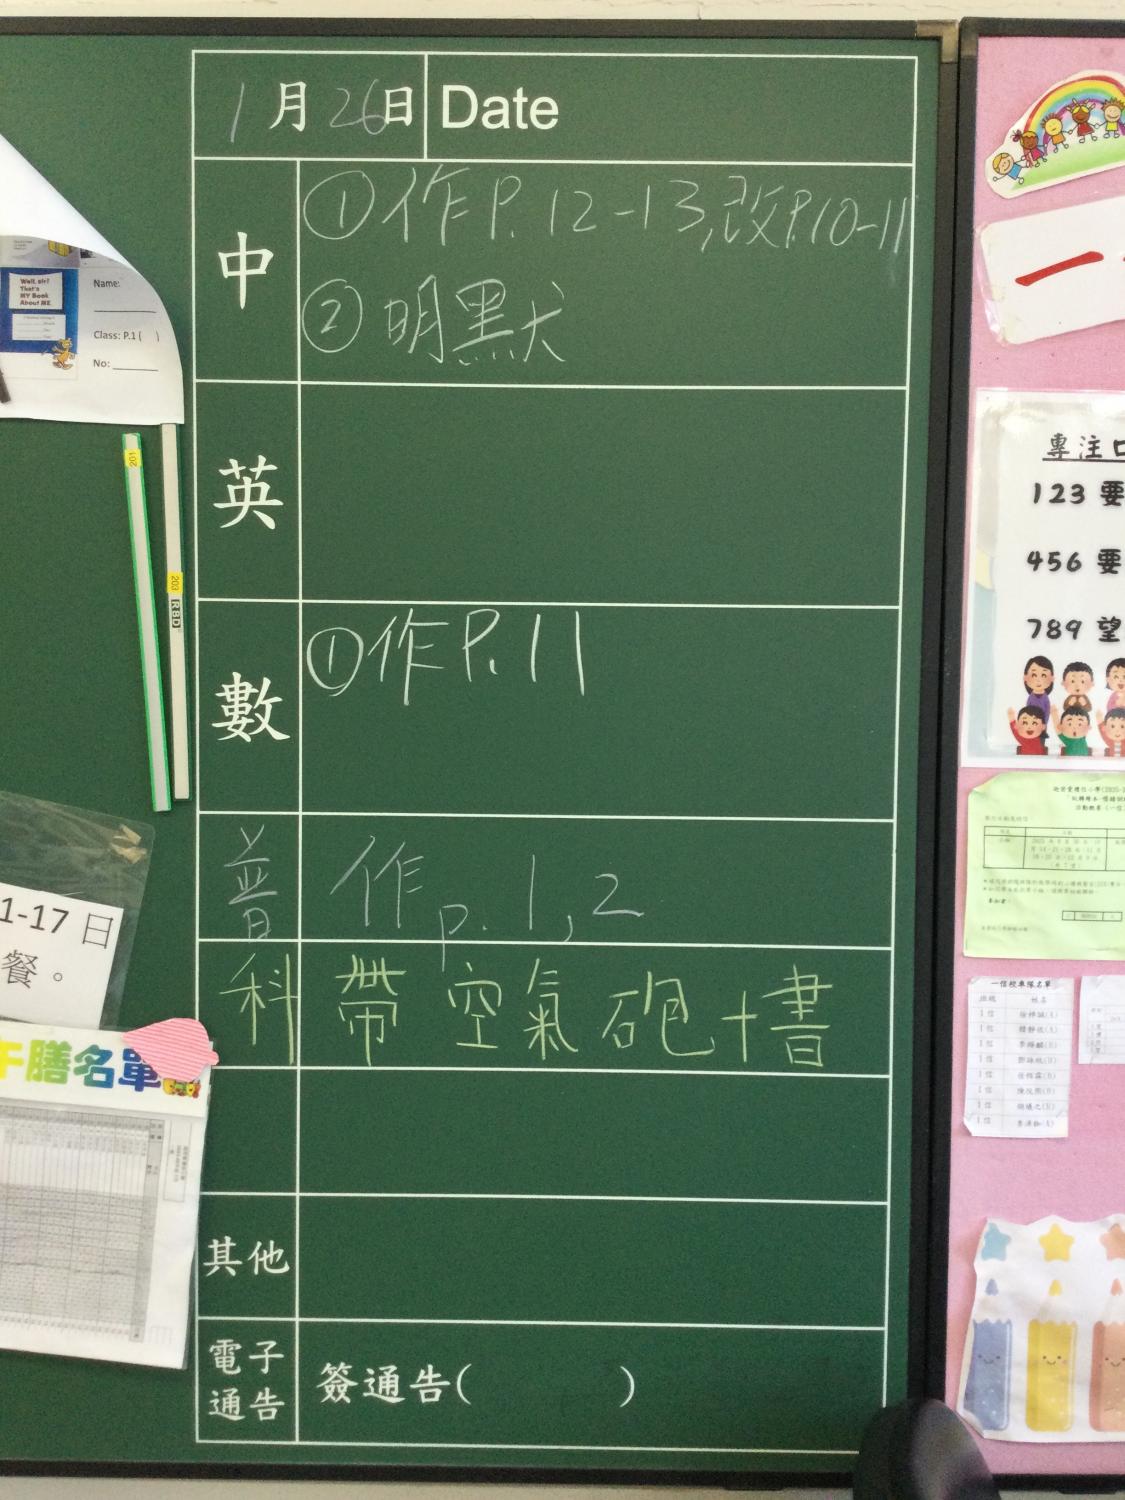 1月26日 Date
中 ①作P.12-13,改P.10-11
②明默
英
數 ①作P.11
普 作p.1,2
科 帶空氣砲+書
其他
電子通告 簽通告( )
Well, sir!
That's
MY Book
About ME
Name:
Class: P.1 ( )
No:
201
203
RBD
1-17日
餐。
午膳名單
一
專注口
123 要
456 要
789 望
一信校車隊名單
班級 姓名
1信
1信
1信
1信
1信
1信
1信
1信